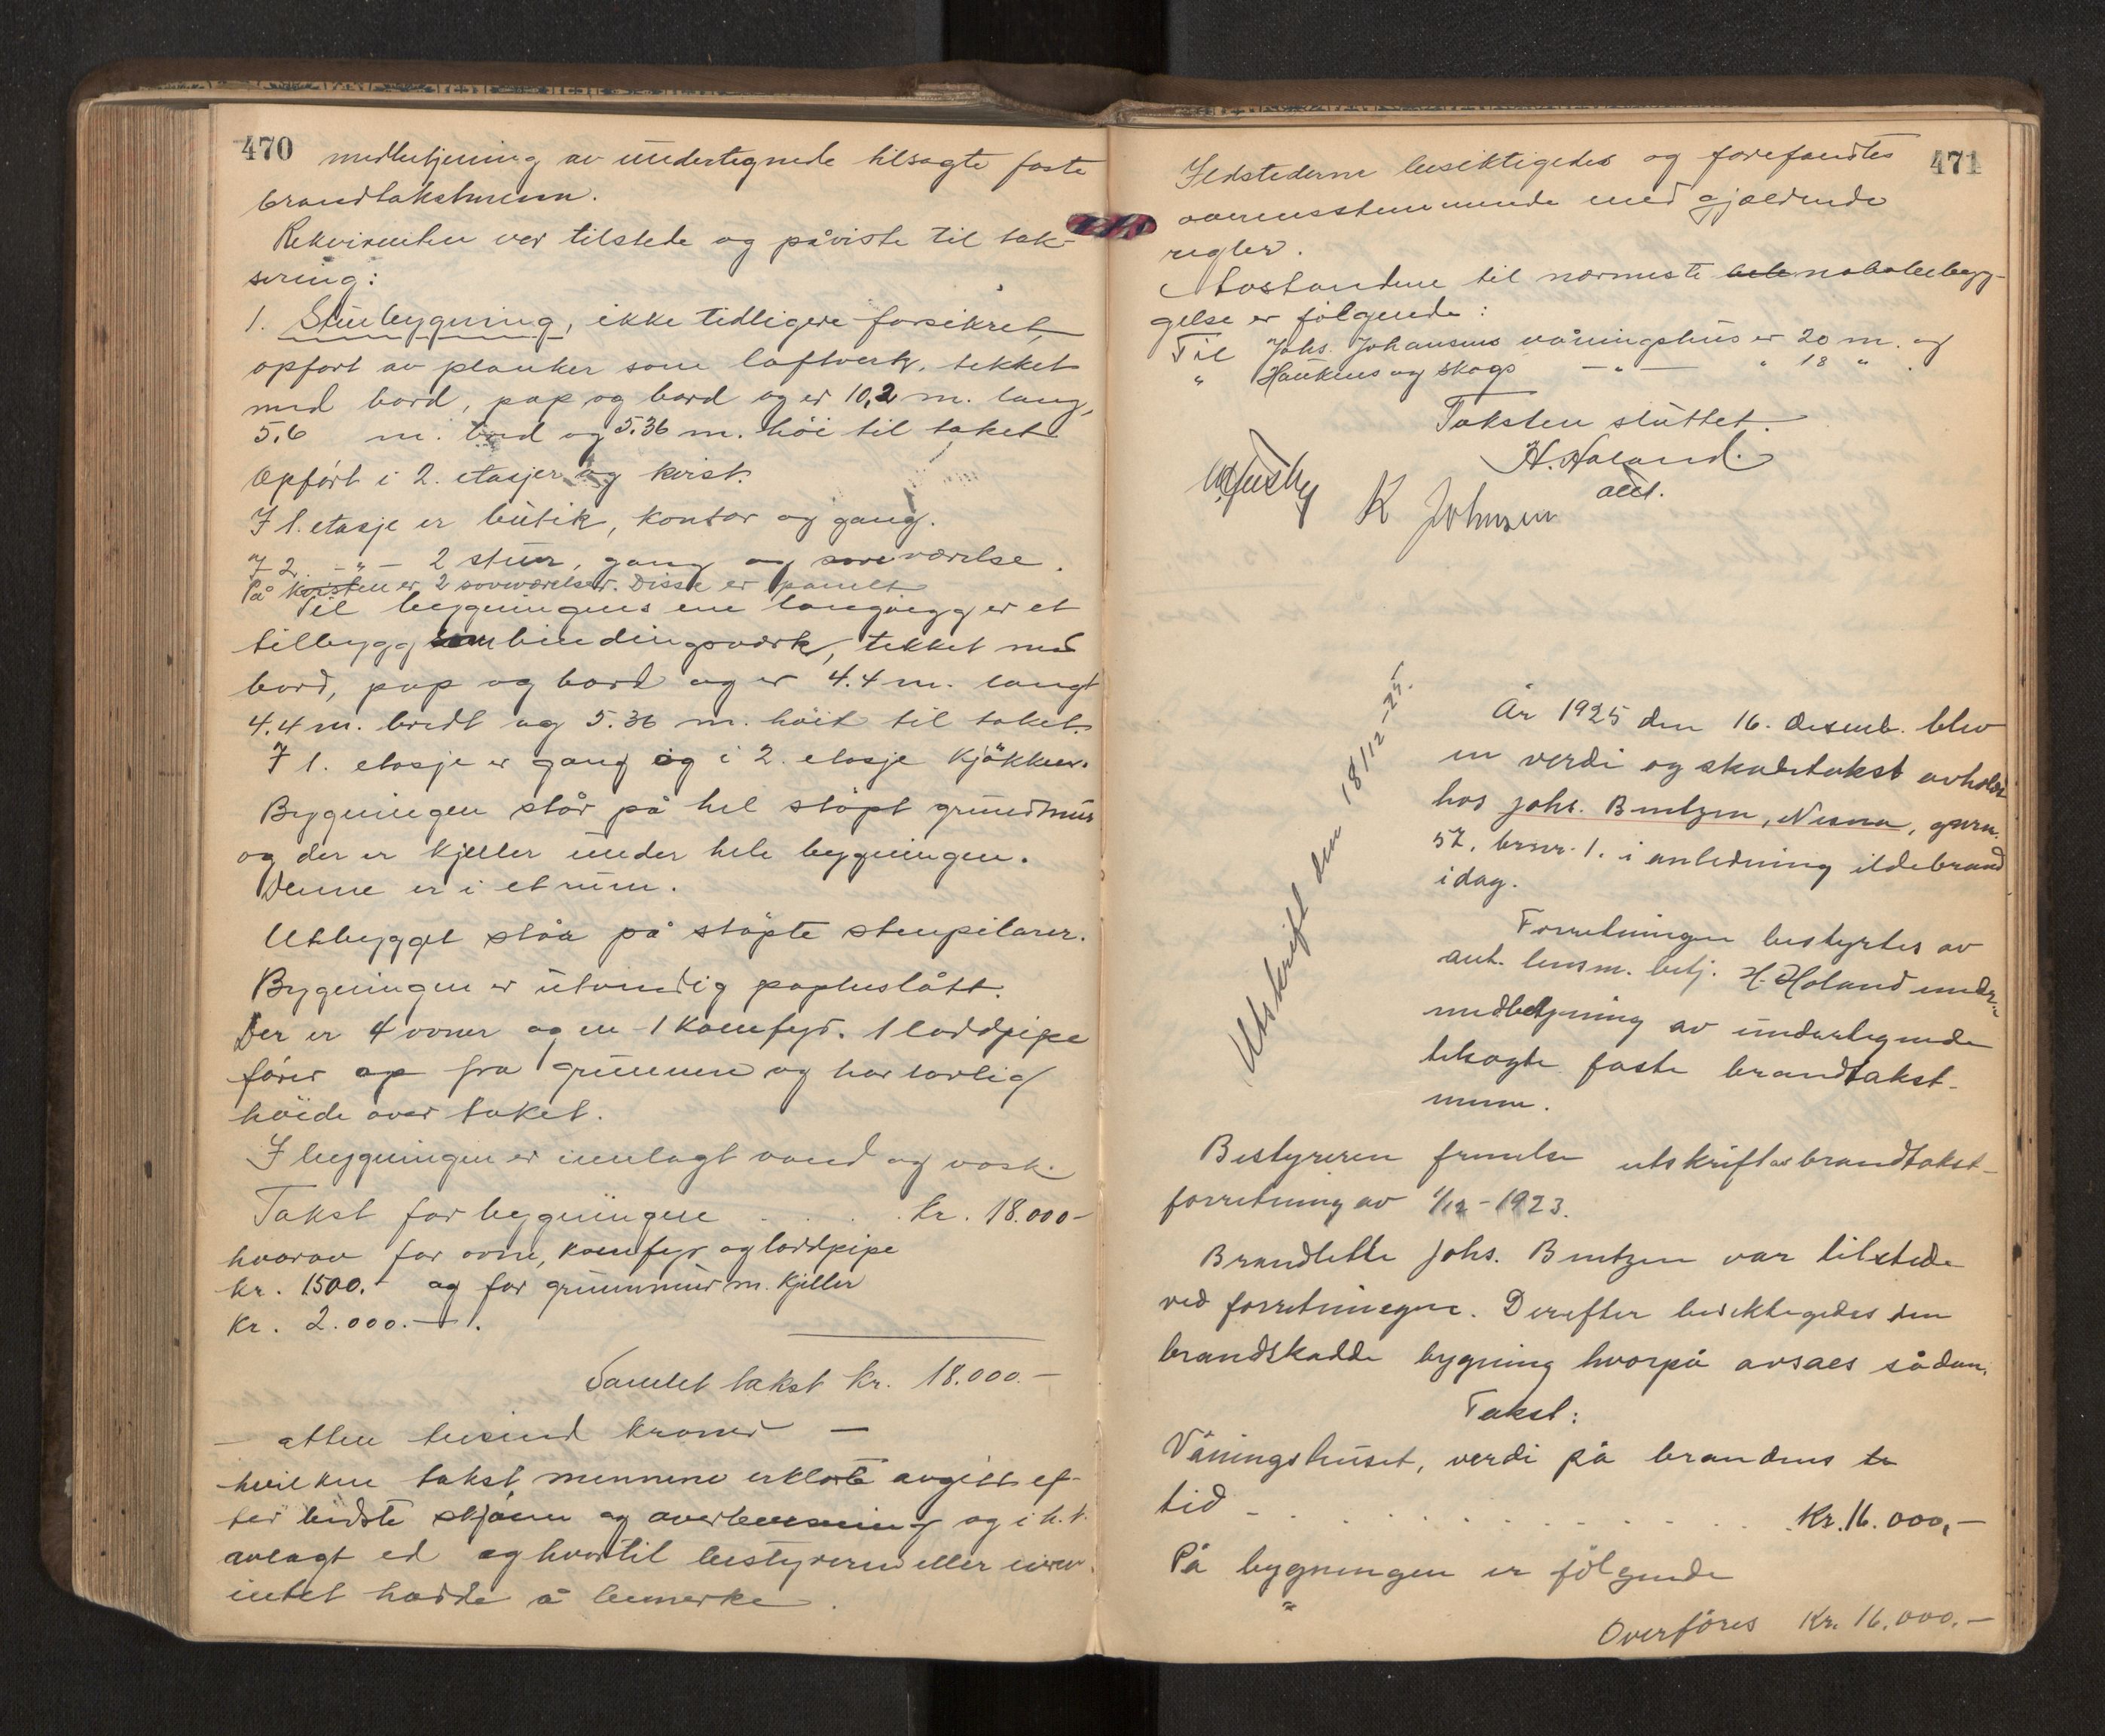 470
medbetjening av undertegnede tilsagte faste
brandtakstmenn.
Rekvirenten var tilstede og påviste til tak-
sering:
1. Stuebygning, ikke tidligere forsikret,
opført av planker som laftverk, tekket
med bord, pap og bord og er 10,2 m. lang,
5.6 m. bred og 5.36 m. höi til taket.
Opfört i 2. etasjer og kvist.
I 1. etasje er butik, kontor og gang.
I 2. -"- 2 stuer, gang og soveværelse.
På kvisten er 2 soveværelser. Disse er panelt
Til bygningens ene langvegg er et
tilbygg som bindingsverk, tekket med
bord, pap og bord og er 4.4 m. langt
4.4 m. bredt og 5.36 m. höit til taket.
I 1. etasje er gang og i 2. etasje kjökken.
Bygningen står på hel stöpt grundmur
og der er kjeller under hele bygningen.
Denne er i et rum.
Utbygget står på stöpte stenpilarer.
Bygningen er utvendig papbeslått.
Der er 4 ovner og en - 1 komfyr. 1 loddpipe
förer op fra grunnen og har lovlig
höide over taket.
I bygningen er innlagt vand og vask.
Takst for bygningen . . . . kr. 18.000-
hvorav for ovne, komfyr og loddpipe
kr. 1500.- og for grunnmur m. kjeller
Kr. 2.000.-.
Samlet takst kr. 18.000.-
- atten tusind kroner -
hvilken takst mennene erklærte avgitt ef-
ter bedste skjönn og overbevisning og i h. t.
avlagt ed og hvortil bestyreren eller
intet hadde å bemerke.
471
Ildstederne besiktigedes og forefandtes
overensstemmende med gjældende
regler.
Avstandene til nærmeste nabobebyg-
gelse er fölgende:
Til Johs. Johansens våningshus er 20 m. og
" Haukens og Skogs -"- " 18 ".
Taksten sluttet.
H. Høland.
aut.
K Johnsen
Utskrift den 18/12-25.
År 1925 den 16. desemb. blev
en verdi og skadetakst avholdt
hos Johs. Bentzen, Nesna, gårn.
57, brnr. 1. i anledning ildebrand
idag.
Forretningen bestyrtes av
aut. lensm. betj. H. Høland under
medbetjening av undertegnede
tilsagte faste brandtakst-
menn.
Bestyreren fremla utskrift av brandtakst-
forretning av 1/12-1923.
Brandlidte Johs. Bentzen var tilstede
ved forretningen. Derefter besiktigedes den
brandskadde bygning hvorpå avsaes sådan
Takst:
Våningshuset, verdi på brandens
tid - . . . . . . . . . . Kr. 16.000,-
På bygningen er fölgende
Overföres Kr. 16.000.-